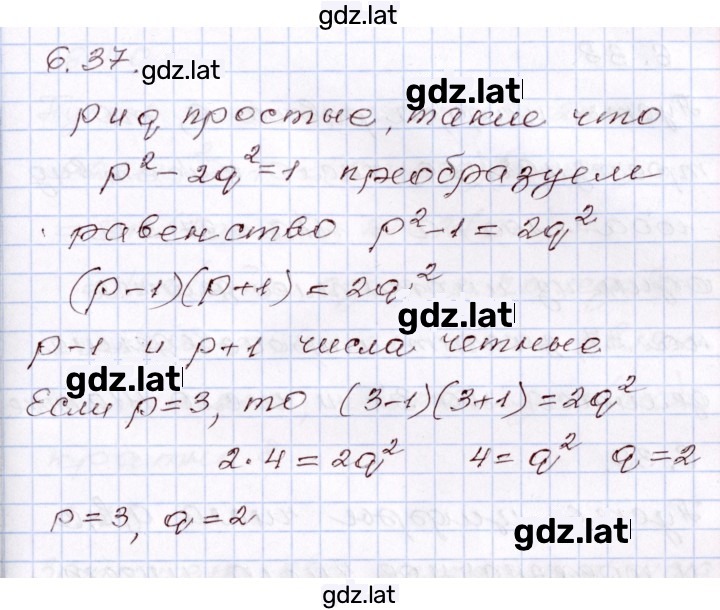 gdz.lat
6.37. gdz.lat
gdz.lat
p и q простые, такие что
p² - 2q² = 1 преобразуем
равенство p² - 1 = 2q²
(p-1)(p+1) = 2q²
gdz.lat
p-1 и p+1 числа четные
gdz.lat
Если p=3, то (3-1)(3+1) = 2q²
2·4 = 2q² 4 = q² q = 2
p = 3, q = 2
gdz.lat
gdz.lat